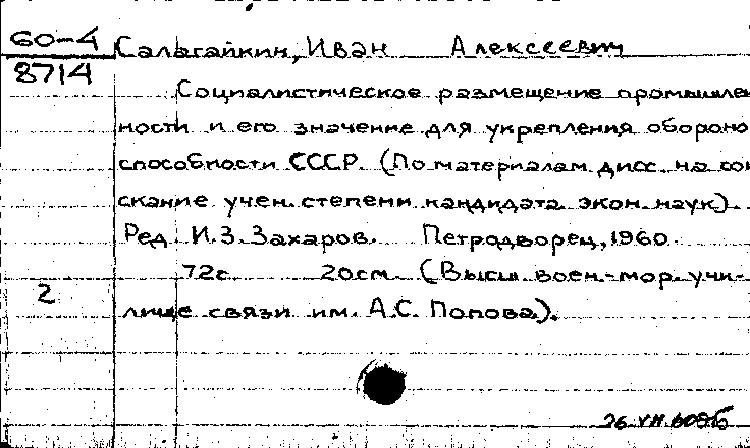 60-4
8714
Салагайкин, Иван Алексеевич
Социалистическое размещение промышлен
ности и его значение для укрепления обороно
способности СССР. (По материалам дисс. на сои
скание учен. степени кандидата экон. наук).
Ред. И.З. Захаров. Петродворец, 1960.
72с. 20см. (Высш. воен.-мор. учи-
2
лище связи им. А.С. Попова).
26 VII